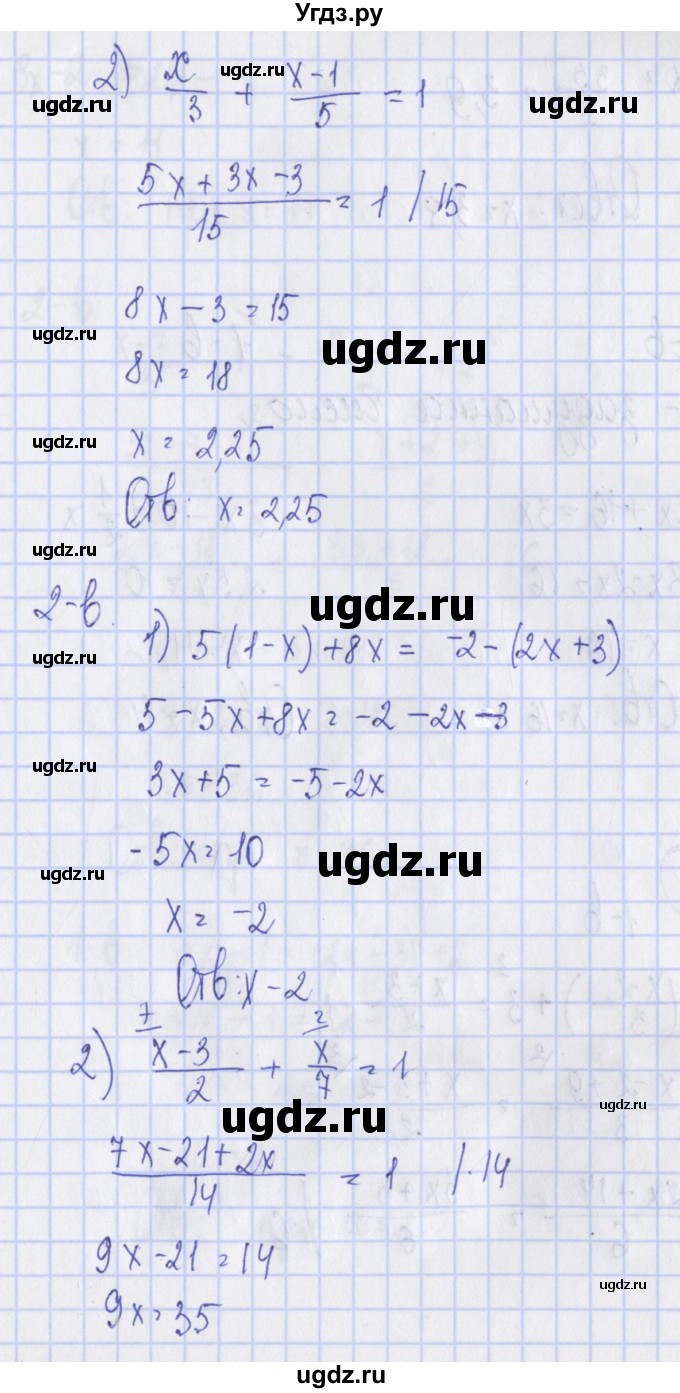 Угдз.ру
2) x/3 + (x-1)/5 = 1
ugdz.ru ugdz.ru ugdz.ru
(5x + 3x - 3)/15 = 1 /·15
8x - 3 = 15
ugdz.ru ugdz.ru
8x = 18
ugdz.ru
x = 2,25
Отв: x = 2,25
ugdz.ru
2-в. ugdz.ru
1) 5(1-x)+8x = -2-(2x+3)
ugdz.ru
5-5x+8x = -2-2x-3
ugdz.ru
3x+5 = -5-2x
-5x = 10
ugdz.ru ugdz.ru
x = -2
Отв: x-2
7/ 2/
2) (x-3)/2 + x/7 = 1
ugdz.ru ugdz.ru
(7x-21+2x)/14 = 1 /·14
9x-21 = 14
ugdz.ru
9x = 35
ugdz.ru